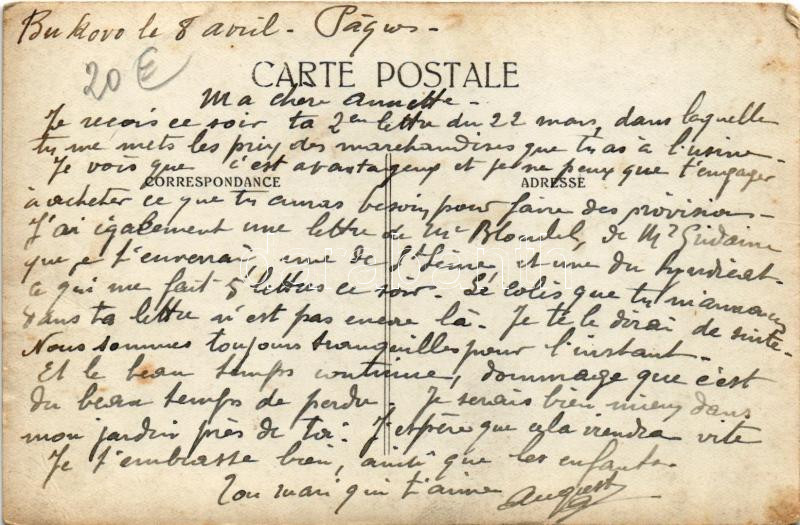 Bukovo le 8 avril - Pâques -
20 €
CARTE POSTALE
Ma chère Annette -
Je reçois ce soir ta 2en lettre du 22 mars, dans laquelle
tu me mets les prix des marchandises que tu as à l'usine -
Je vois que c'est avantageux et je ne peux que t'engager
CORRESPONDANCE
ADRESSE
à acheter ce que tu auras besoin pour faire des provisions -
J'ai également une lettre de Me Blondel, de Mr
que je t'enverrai, une de et une du syndicat -
ce qui me fait 5 lettre ce soir. Le colis que tu m'annonces
dans ta lettre n'est pas encore là. Je te le dirai de suite -
Nous sommes toujours tranquilles pour l'instant -
Et le beau temps continue, dommage que c'est
du beau temps de perdu. Je serais bien mieux dans
mon jardin près de toi. J'espère que cela viendra vite
Je t'embrasse bien, ainsi que les enfants.
Ton mari qui t'aime August